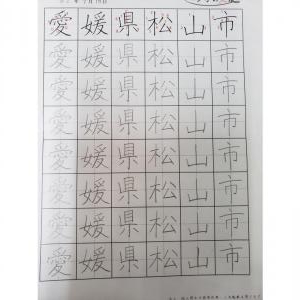 愛媛県松山市
愛媛県松山市
愛媛県松山市
愛媛県松山市
愛媛県松山市
愛媛県松山市
愛媛県松山市
愛媛県松山市